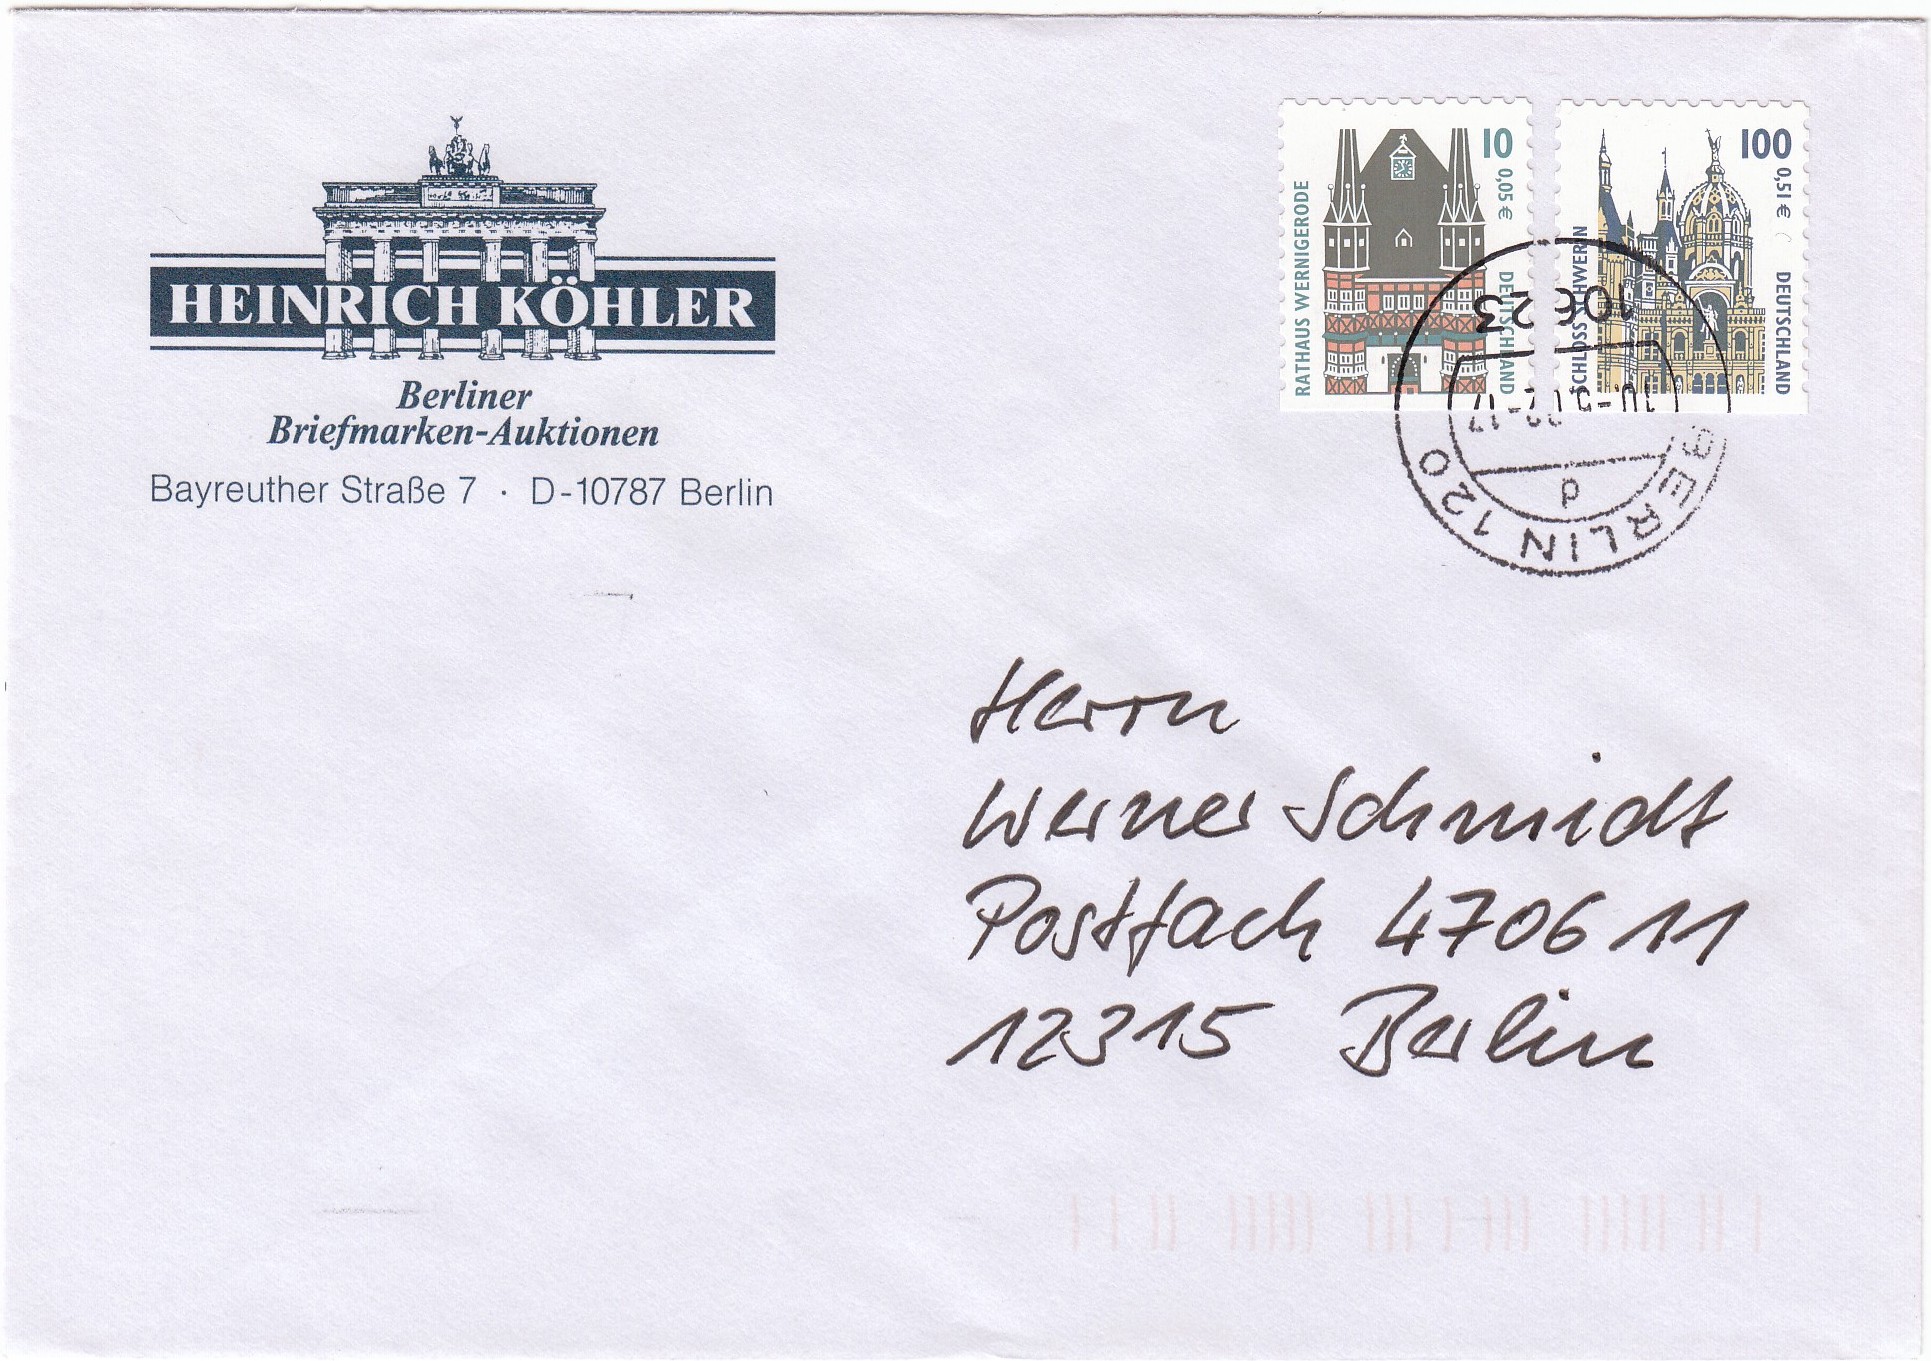 HEINRICH KÖHLER
Berliner
Briefmarken-Auktionen
Bayreuther Straße 7 · D-10787 Berlin
RATHAUS WERNIGERODE
10
0,05 €
DEUTSCHLAND
SCHLOSS SCHWERIN
100
0,51 €
DEUTSCHLAND
BERLIN 120
10623
Herrn
Werner Schmidt
Postfach 470611
12315 Berlin